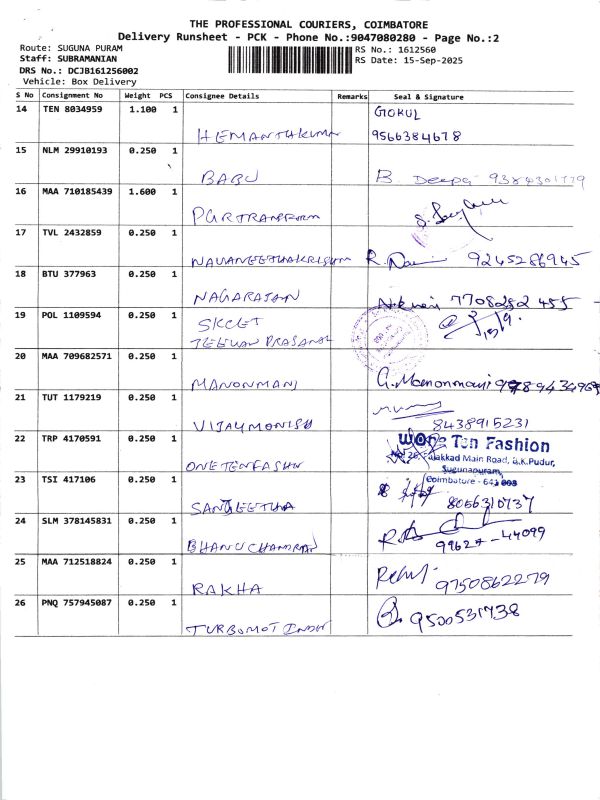 THE PROFESSIONAL COURIERS, COIMBATORE
Delivery Runsheet - PCK - Phone No.:9047080280 - Page No.:2
Route: SUGUNA PURAM
Staff: SUBRAMANIAN
DRS No.: DCJB161256002
Vehicle: Box Delivery
RS No.: 1612560
RS Date: 15-Sep-2025
S No Consignment No Weight PCS Consignee Details Remarks Seal & Signature
14 TEN 8034959 1.100 1 HEMANTHAKUMAR GOKUL
9566384678
15 NLM 29910193 0.250 1 BABU B. Deepa 9384301779
16 MAA 710185439 1.600 1 PGRTRANFORM
17 TVL 2432859 0.250 1 NAVANEETHAKRISHN R. 9245286945
18 BTU 377963 0.250 1 NAGARAJAN 7708282 455
19 POL 1109594 0.250 1 SKCET
JEEVAN PRASANAL
20 MAA 709682571 0.250 1 MANONMANI G. Manonmani
21 TUT 1179219 0.250 1 VIJAYMONISH 8438915231
22 TRP 4170591 0.250 1 ONETENFASHN One Ten Fashion
Palakkad Main Road, B.K.Pudur,
Sugunapuram,
Coimbatore - 641 008
23 TSI 417106 0.250 1 SANGEETHA 8056310737
24 SLM 378145831 0.250 1 BHANUCHANDRAN 99627-44099
25 MAA 712518824 0.250 1 RAKHA 9750862279
26 PNQ 757945087 0.250 1 TURBOMOT INDN 9500531738